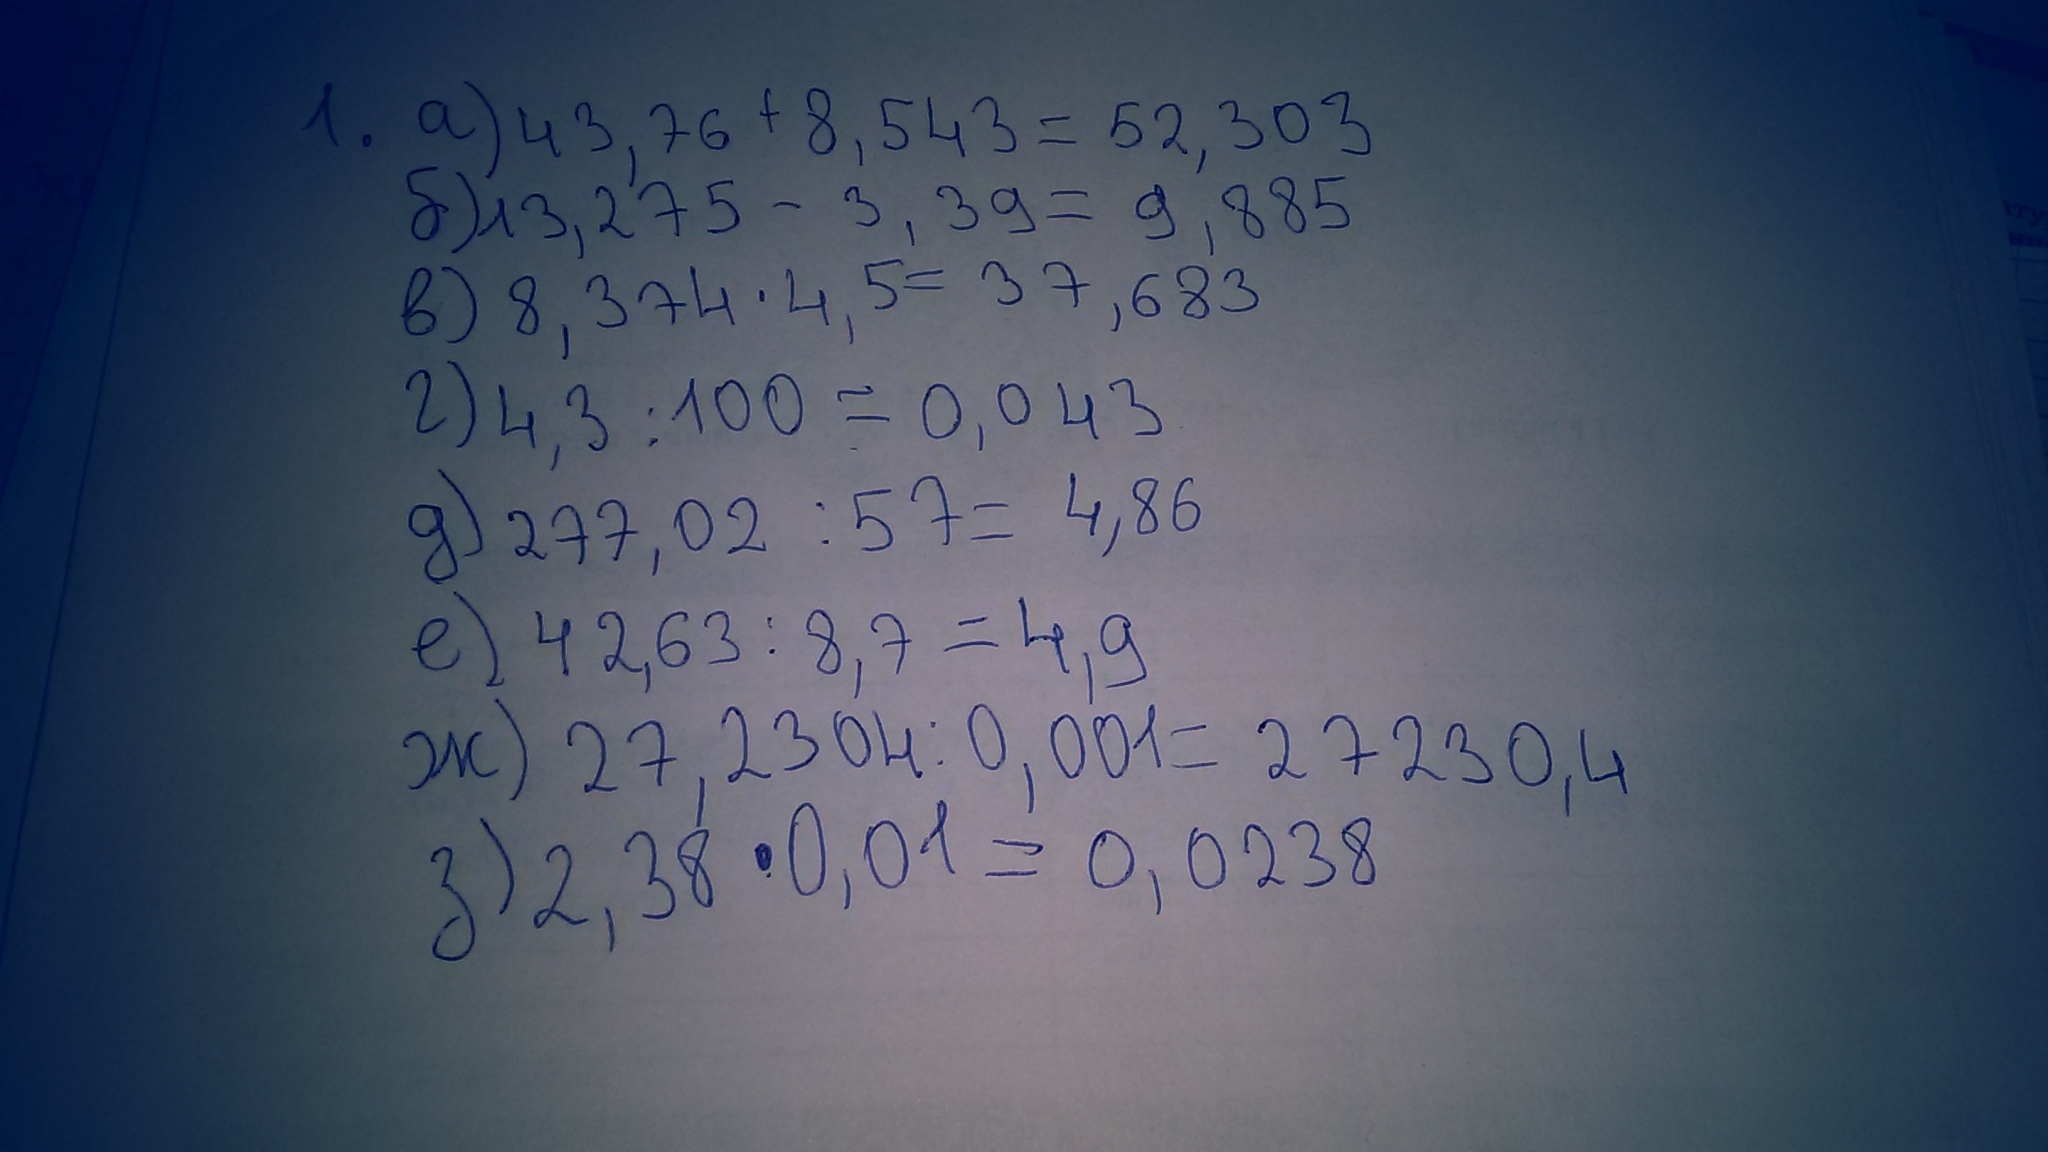 1. а) 43,76 + 8,543 = 52,303
б) 13,275 - 3,39 = 9,885
в) 8,374 · 4,5 = 37,683
г) 4,3 : 100 = 0,043
д) 277,02 : 57 = 4,86
е) 42,63 : 8,7 = 4,9
ж) 27,2304 : 0,001 = 27230,4
з) 2,38 · 0,01 = 0,0238